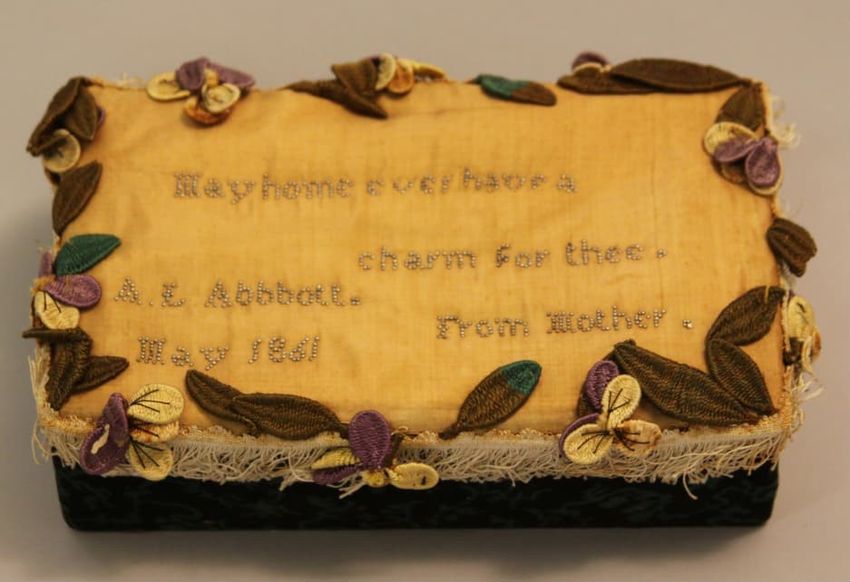 May home ever have a
charm for thee.
A. L. Abbbott.
From Mother.
May 1861